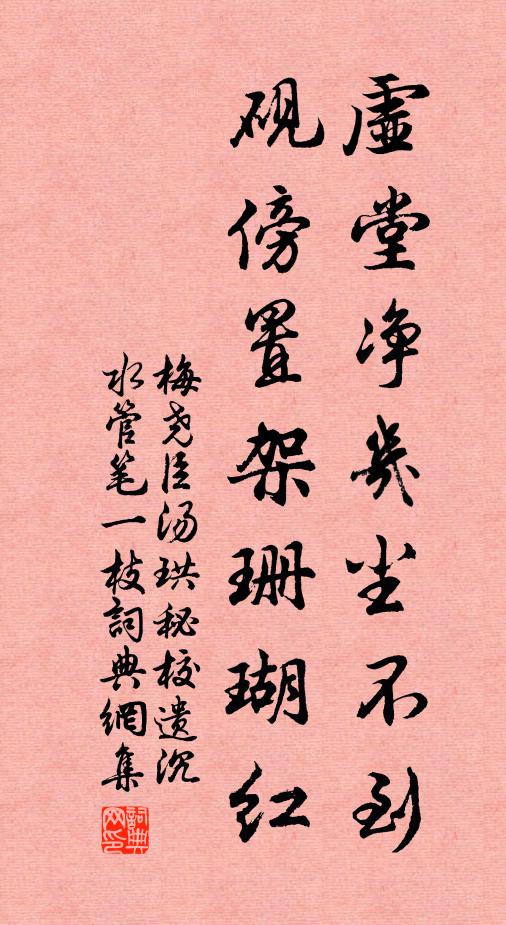 虛堂净幾尘不到
硯傍置架珊瑚红
梅尧臣汤珙秘校遗沉
水管笔一枝詞典網集
詞典网印